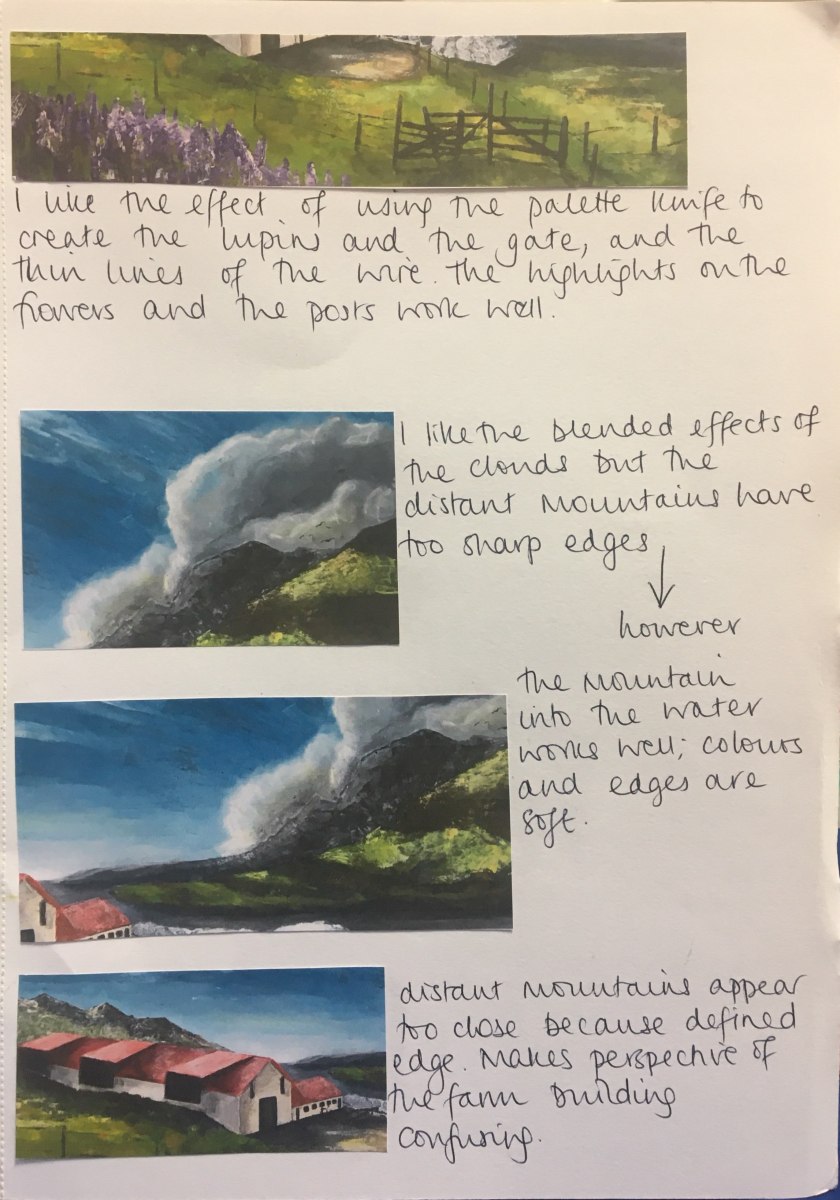 I like the effect of using the palette knife to
create the lupins and the gate, and the
thin lines of the wire. The highlights on the
flowers and the posts work well.
I like the blended effects of
the clouds but the
distant mountains have
too sharp edges
however
the mountain
into the water
works well; colours
and edges are
soft.
distant mountains appear
too close because defined
edge. Makes perspective of
the farm building
confusing.